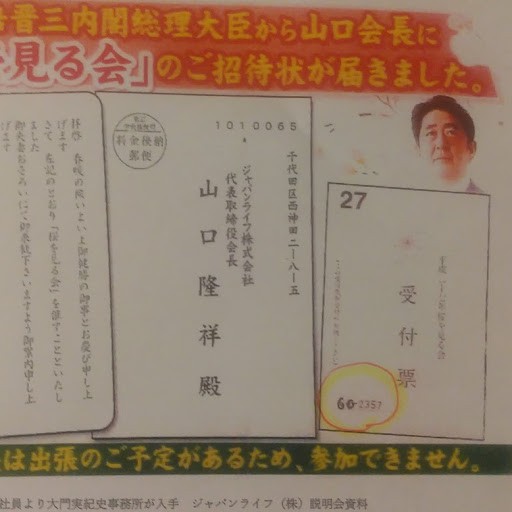 晋三内閣総理大臣から山口会長に
見る会」のご招待状が届きました。
拝啓 春暖の候いよいよ御健勝の御事とお慶び申し上
げます
さて 左記のとおり「桜を見る会」を催すことといたし
ました
御夫妻おそろいにて御来観下さいますよう御案内申し上
げます
料金後納
郵便
1010065
千代田区西神田二ー八ー五
ジャパンライフ株式会社
代表取締役会長
山口隆祥殿
27
平成二十七年桜を見る会
受付票
60-2357
は出張のご予定があるため、参加できません。
社員より大門実紀史事務所が入手 ジャパンライフ(株)説明会資料